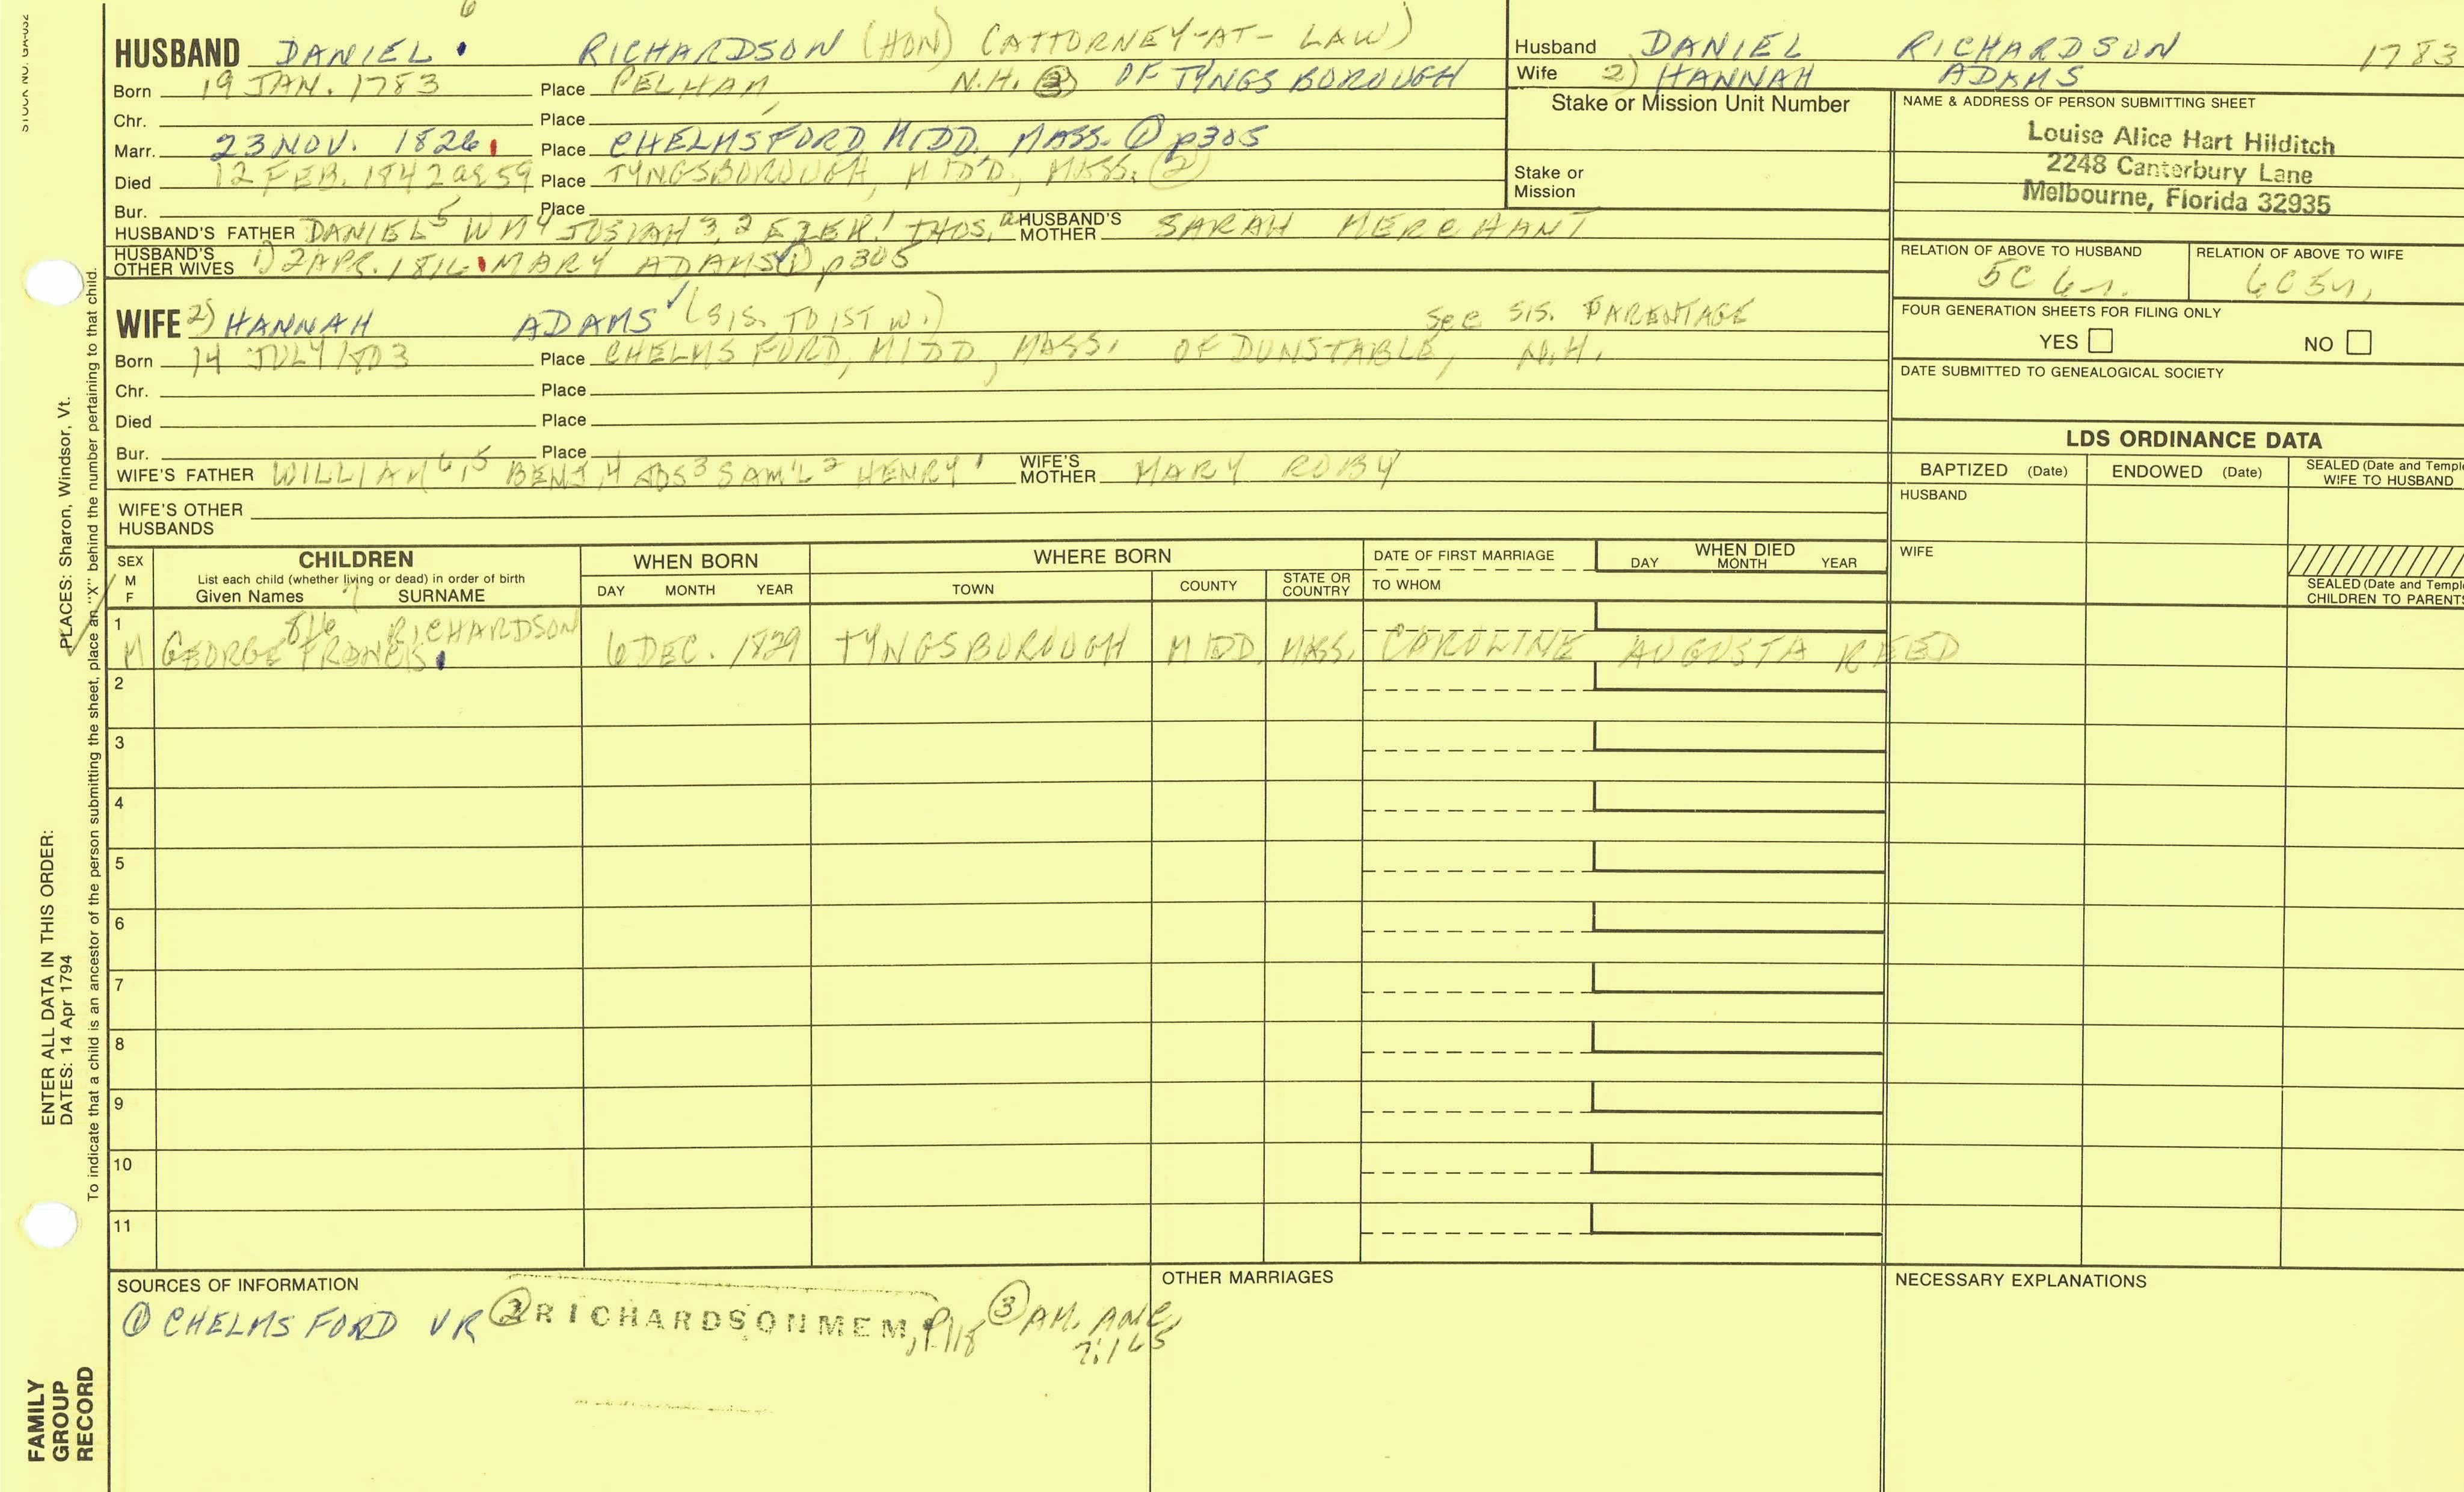 STOCK NO. GA-032
6
HUSBAND DANIEL RICHARDSON (HON) (ATTORNEY-AT-LAW)
Born 19 JAN. 1783 Place PELHAM, N.H. ③ OF TYNGSBOROUGH
Chr. Place
Marr. 23 NOV. 1826 Place CHELMSFORD, MIDD. MASS. ① p305
Died 12 FEB. 1842 ae 59 Place TYNGSBOROUGH, MIDD, MASS. ②
Bur. Place
HUSBAND'S FATHER DANIEL5 WM4 JOSIAH3,2 EZEK.1 THOS.a HUSBAND'S MOTHER SARAH MERCHANT
HUSBAND'S OTHER WIVES 1) 2 APR. 1816 MARY ADAMS ① p305
WIFE 2) HANNAH ADAMS (SIS. TO 1ST W.) See SIS. PARENTAGE
Born 14 JULY 1803 Place CHELMSFORD, MIDD, MASS. OF DUNSTABLE, N.H.
Chr. Place
Died Place
Bur. Place
WIFE'S FATHER WILLIAM6,5 BENJ,4 JOS3 SAM'L2 HENRY1 WIFE'S MOTHER MARY ROBY
WIFE'S OTHER HUSBANDS
Husband DANIEL RICHARDSON 1783
Wife 2) HANNAH ADAMS
Stake or Mission Unit Number
Stake or Mission
NAME & ADDRESS OF PERSON SUBMITTING SHEET
Louise Alice Hart Hilditch
2248 Canterbury Lane
Melbourne, Florida 32935
RELATION OF ABOVE TO HUSBAND RELATION OF ABOVE TO WIFE
5C 6r. 6C5r,
FOUR GENERATION SHEETS FOR FILING ONLY
YES NO
DATE SUBMITTED TO GENEALOGICAL SOCIETY
LDS ORDINANCE DATA
BAPTIZED (Date) ENDOWED (Date) SEALED (Date and Temple
WIFE TO HUSBAND
HUSBAND
WIFE
SEALED (Date and Temple
CHILDREN TO PARENTS
SEX M F CHILDREN WHEN BORN WHERE BORN DATE OF FIRST MARRIAGE WHEN DIED
List each child (whether living or dead) in order of birth
Given Names SURNAME DAY MONTH YEAR TOWN COUNTY STATE OR COUNTRY TO WHOM DAY MONTH YEAR
7
1 816 RICHARDSON
M GEORGE FRANCIS 6 DEC. 1829 TYNGSBOROUGH MIDD. MASS. CAROLINE AUGUSTA REED
2
3
4
5
6
7
8
9
10
11
SOURCES OF INFORMATION
① CHELMSFORD VR ② RICHARDSON MEM, p.118 ③ AM. ANC. 7:165
OTHER MARRIAGES
NECESSARY EXPLANATIONS
ENTER ALL DATA IN THIS ORDER:
DATES: 14 Apr 1794 PLACES: Sharon, Windsor, Vt.
To indicate that a child is an ancestor of the person submitting the sheet, place an "X" behind the number pertaining to that child.
FAMILY
GROUP
RECORD